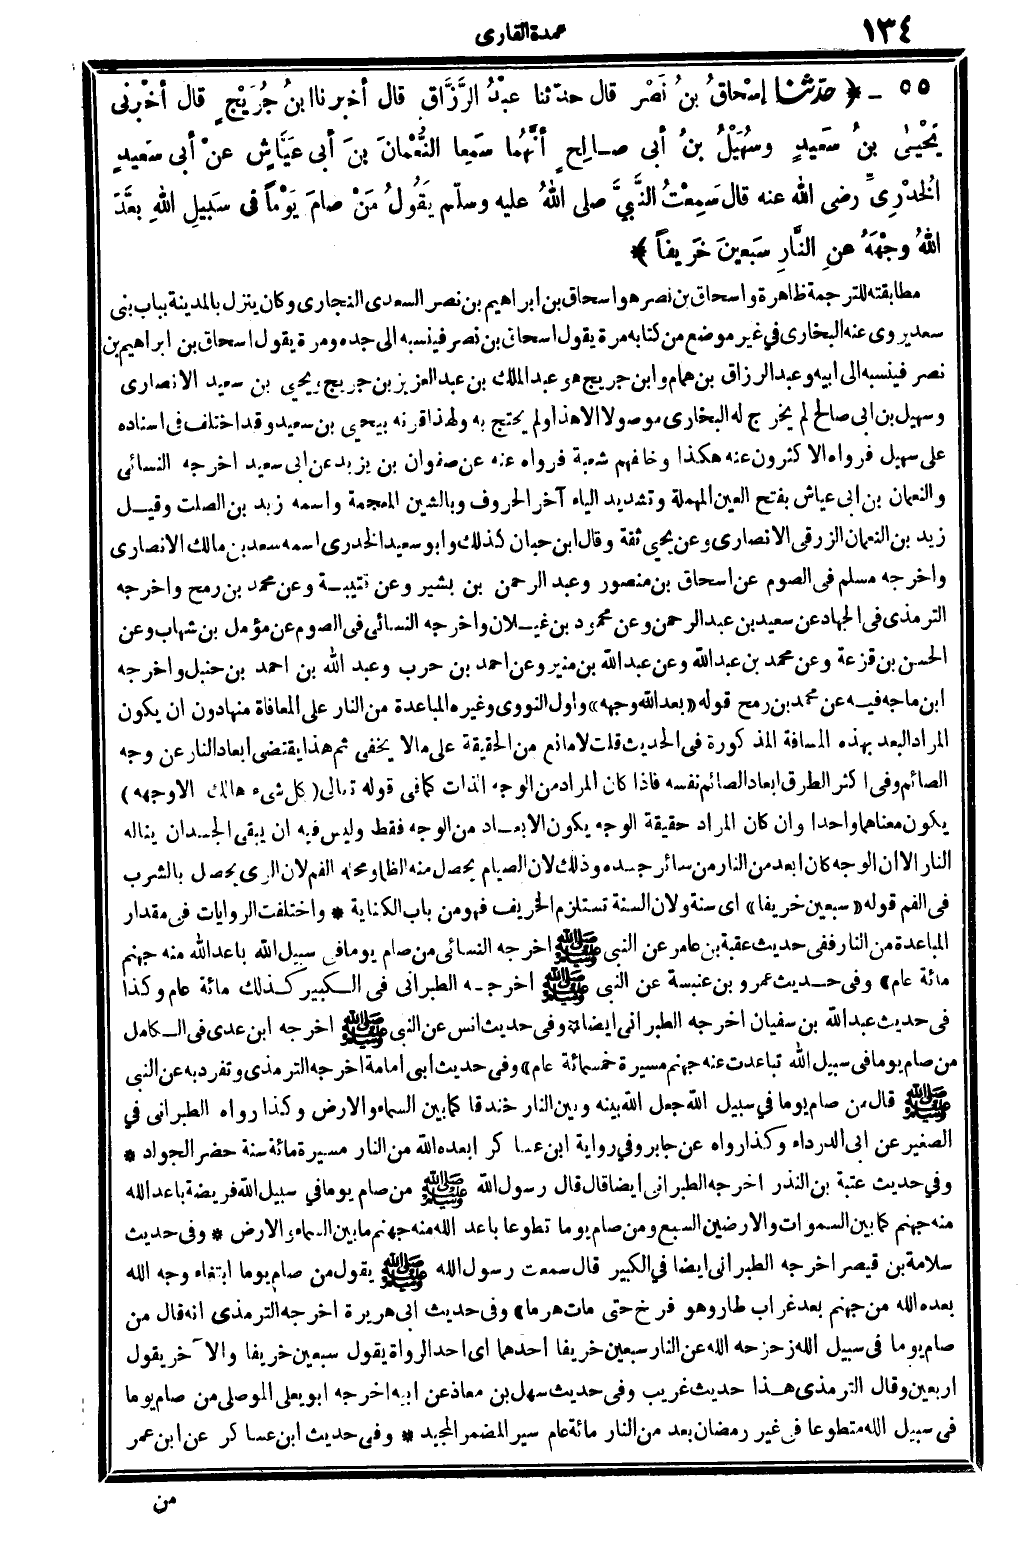 ١٣٤
عمدة القارى
٥٥ ـ ﴿ حَدَّثَنَا إِسْحَاقُ بنُ نَصْرٍ قال حدّثنا عبْدُ الرَّزَّاقِ قال أخبرنا ابنُ جُرَيْجٍ قال أخْبرنى
يَحْيىٰ بنُ سَعِيدٍ وسُهَيْلُ بنُ أبى صالِحٍ أنَّهُما سَمِعا النُّعْمانَ بنَ أبى عَيَّاشٍ عنْ أبى سَعِيدٍ
الْخُدْرِىِّ رضى الله عنه قال سَمِعْتُ النَّبِيَّ صلى اللهُ عليه وسلّم يَقُولُ مَنْ صامَ يَوْماً فى سَبِيلِ اللهِ بَعَّدَ
اللهُ وجْهَهُ عنِ النَّارِ سَبعينَ خَرِيفاً ﴾ *
مطابقته للترجمة ظاهرة واسحاق بن نصر هو اسحاق بن ابراهيم بن نصر السعدى النجارى وكان ينزل بالمدينة بباب بنى
سعد يروى عنه البخارى في غير موضع من كتابه مرة يقول اسحاق بن نصر فينسبه الى جده ومرة يقول اسحاق بن ابراهيم بن
نصر فينسبه الى ابيه وعبد الرزاق بن همام وابن جريج هو عبد الملك بن عبد العزيز بن جريج ويحيى بن سعيد الانصارى
وسهيل بن ابى صالح لم يخرج له البخارى موصولا الا هذا ولم يحتج به ولهذا قرنه بيحيى بن سعيد وقد اختلف فى اسناده
على سهيل فرواه الاكثرون عنه هكذا وخالفهم شعبة فرواه عنه عن صفوان بن يزيد عن ابى سعيد اخرجه النسائى
والنعمان بن ابى عياش بفتح العين المهملة وتشديد الياء آخر الحروف وبالشين المعجمة واسمه زيد بن الصلت وقيل
زيد بن النعمان الزرقى الانصارى وعن يحيى ثقة وقال ابن حبان كذلك وابو سعيد الخدرى اسمه سعد بن مالك الانصارى
واخرجه مسلم فى الصوم عن اسحاق بن منصور وعبد الرحمن بن بشير وعن قتيبة وعن محمد بن رمح واخرجه
الترمذى فى الجهاد عن سعيد بن عبد الرحمن وعن محمود بن غيلان واخرجه النسائى فى الصوم عن مؤمل بن شهاب وعن
الحسن بن قزعة وعن محمد بن عبد الله وعن عبد الله بن منير وعن احمد بن حرب وعبد الله بن احمد بن حنبل واخرجه
ابن ماجه فيه عن محمد بن رمح قوله «بعد الله وجهه» واول النووى وغيره المباعدة من النار على المعافاة منها دون ان يكون
المراد البعد بهذه المسافة المذكورة فى الحديث قلت لا مانع من الحقيقة على ما لا يخفى ثم هذا يقتضى ابعاد النار عن وجه
الصائم وفى اكثر الطرق ابعاد الصائم نفسه فاذا كان المراد من الوجه الذات كما فى قوله تعالى (كل شىء هالك الا وجهه)
يكون معناهما واحدا وان كان المراد حقيقة الوجه يكون الابعاد من الوجه فقط وليس فيه ان يبقى الجسدان يناله
النار الا أن الوجه كان ابعد من النار من سائر جسده وذلك لان الصيام يحصل منه الظما ومحله الفم لان الرى يحصل بالشرب
فى الفم قوله «سبعين خريفا» اى سنة ولان السنة تستلزم الخريف فهو من باب الكناية * واختلفت الروايات فى مقدار
المباعدة من النار ففى حديث عقبة بن عامر عن النبى ﷺ اخرجه النسائى من صام يوما فى سبيل الله باعد الله منه جهنم
مائة عام» وفى حديث عمرو بن عنبسة عن النبى ﷺ اخرجه الطبرانى فى الكبير كذلك مائة عام وكذا
فى حديث عبد الله بن سفيان اخرجه الطبرانى ايضا * وفى حديث انس عن النبى ﷺ اخرجه ابن عدى فى الكامل
من صام يوما فى سبيل الله تباعدت عنه جهنم مسيرة خمسمائة عام» وفى حديث ابى امامة اخرجه الترمذى وتفرد به عن النبى
ﷺ قال من صام يوما في سبيل الله جعل الله بينه وبين النار خندقا كما بين السماء والارض وكذا رواه الطبرانى في
الصغير عن ابى الدرداء وكذا رواه عن جابر وفي رواية ابن عساكر ابعده الله من النار مسيرة مائة سنة حضر الجواد *
وفي حديث عتبة بن النذر اخرجه الطبرانى ايضا قال قال رسول الله ﷺ من صام يوما في سبيل الله فريضة باعد الله
منه جهنم كما بين السموات والارضين السبع ومن صام يوما تطوعا باعد الله منه جهنم ما بين السماء والارض * وفى حديث
سلامة بن قيصر اخرجه الطبرانى ايضا في الكبير قال سمعت رسول الله ﷺ يقول من صام يوما ابتغاء وجه الله
بعده الله من جهنم بعد غراب طار وهو فرخ حتى مات هرما» وفى حديث ابى هريرة اخرجه الترمذى انه قال من
صام يوما فى سبيل الله زحزحه الله عن النار سبعين خريفا أحدهما اى احد الرواة يقول سبعين خريفا والآخر يقول
اربعين وقال الترمذى هذا حديث غريب وفى حديث سهل بن معاذ عن ابيه اخرجه ابو يعلى الموصلى من صام يوما
فى سبيل الله متطوعا فى غير رمضان بعد من النار مائة عام سير المضمر المجيد * وفى حديث ابن عساكر عن ابن عمر
من